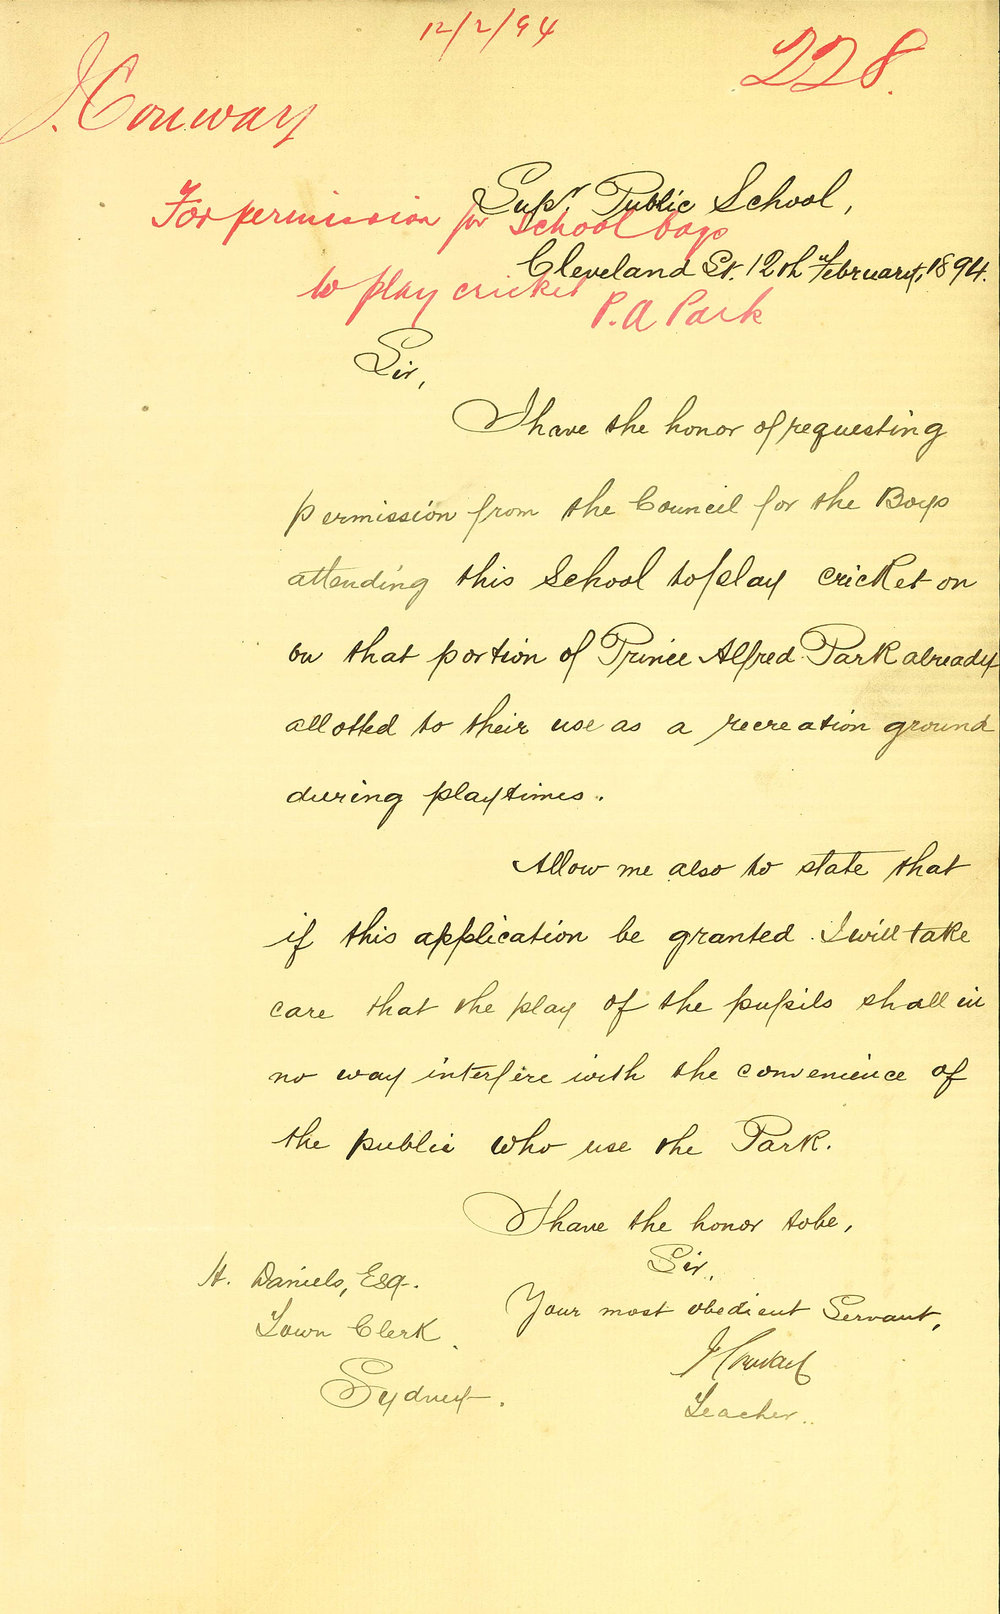 12/2/94
228.
J. Conway
Supr. Public School,
For permission for School boys
Cleveland St. 12th February, 1894.
to play cricket
P. A Park
Sir,
I have the honor of requesting
permission from the Council for the Boys
attending this School to play cricket on
on that portion of Prince Alfred Park already
allotted to their use as a recreation ground
during playtimes.
Allow me also to state that
if this application be granted I will take
care that the play of the pupils shall in
no way interfere with the convenience of
the public who use the Park.
I have the honor to be,
Sir,
Your most obedient Servant,
J Conway
Teacher.
H. Daniels, Esq.
Town Clerk.
Sydney.